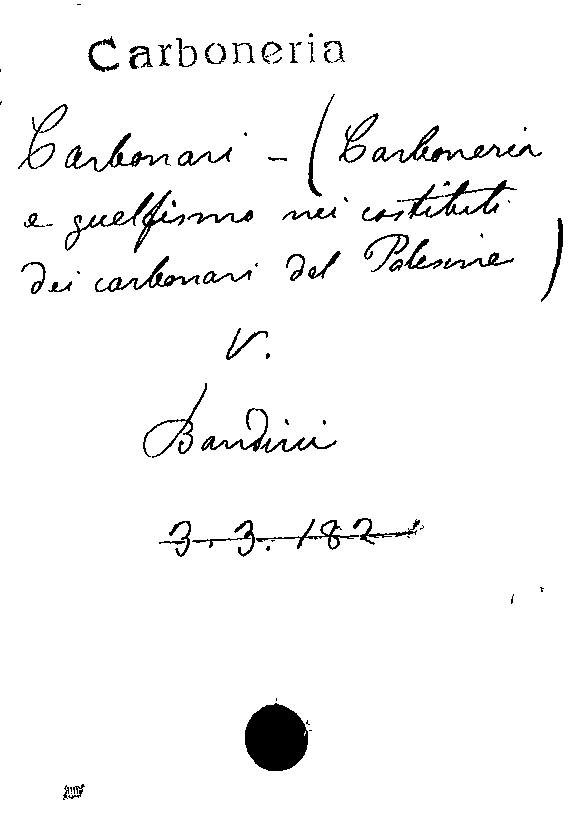 Carboneria
Carbonari - (Carboneria
e guelfismo nei costituti
dei carbonari del Polesine)
V.
Bandini
3.3.182